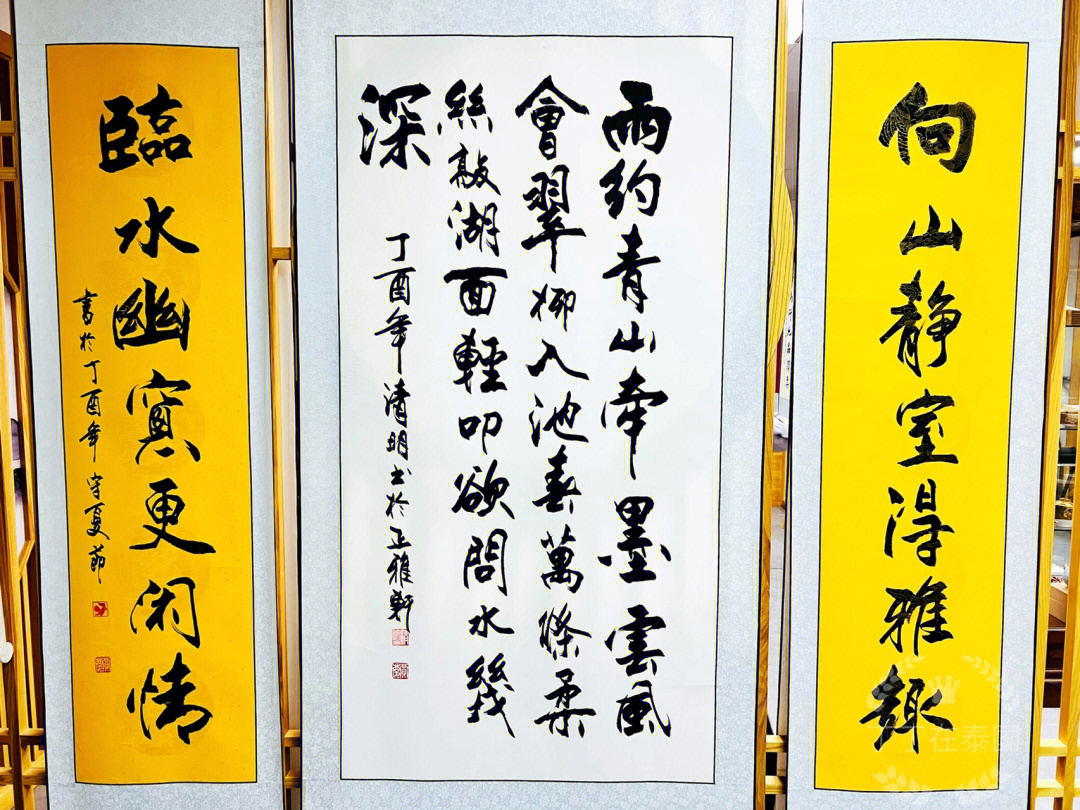 向山静室得雅趣
雨約青山牽墨雲風
會翠柳入池春萬條柔
絲敲湖面輕叩欲問水幾
深
丁酉年清明书於正雅軒
臨水幽窻更闲情
書於丁酉年守夏節
在泰國